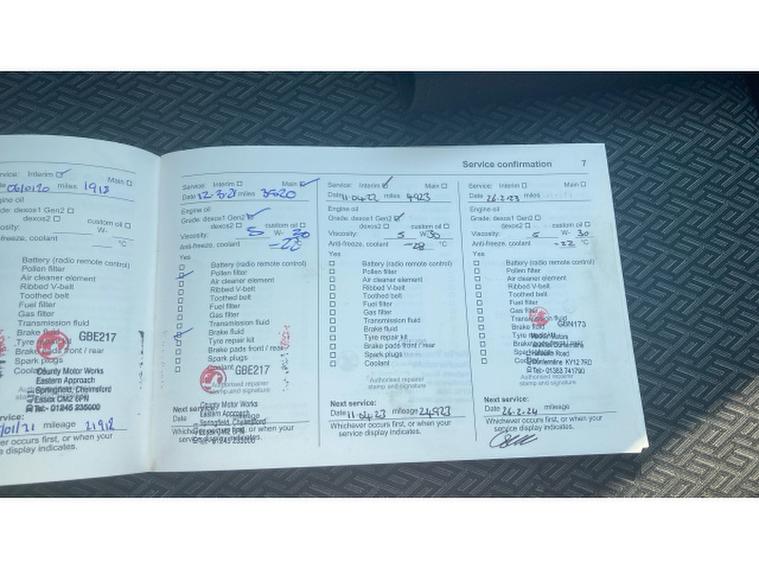 Service confirmation 7
Service: Interim Main
06/01/20 miles 1918
Engine oil
Grade: dexos1 Gen2
dexos2 custom oil
Viscosity: W-
Anti-freeze, coolant °C
Battery (radio remote control)
Pollen filter
Air cleaner element
Ribbed V-belt
Toothed belt
Fuel filter
Gas filter
Transmission fluid
Brake fluid
Tyre repair kit
Brake pads front / rear
Spark plugs
Coolant
GBE217
County Motor Works
Eastern Approach
Springfield, Chelmsford
Essex CM2 6PN
Tel:- 01245 235000
Next service:
/01/21 mileage 21918
Whichever occurs first, or when your
service display indicates.
Service: Interim Main
Date 12-3-21 miles 3520
Engine oil
Grade: dexos1 Gen2
dexos2 custom oil
Viscosity: 5 W- 30
Anti-freeze, coolant -28 °C
Yes
Battery (radio remote control)
Pollen filter
Air cleaner element
Ribbed V-belt
Toothed belt
Fuel filter
Gas filter
Transmission fluid
Brake fluid
Tyre repair kit
Brake pads front / rear
Spark plugs
Coolant
GBE217
Authorised repairer
stamp and signature
County Motor Works
Eastern Approach
Springfield, Chelmsford
Essex CM2 6PN
Tel:- 01245 235000
Next service:
Date mileage
Whichever occurs first, or when your
service display indicates.
Service: Interim Main
Date 11.04.22 miles 4923
Engine oil
Grade: dexos1 Gen2
dexos2 custom oil
Viscosity: 5 W- 30
Anti-freeze, coolant -28 °C
Yes
Battery (radio remote control)
Pollen filter
Air cleaner element
Ribbed V-belt
Toothed belt
Fuel filter
Gas filter
Transmission fluid
Brake fluid
Tyre repair kit
Brake pads front / rear
Spark plugs
Coolant
Authorised repairer
stamp and signature
Next service:
Date 11.04.23 mileage 24923
Whichever occurs first, or when your
service display indicates.
Service: Interim Main
Date 26.2.23 miles
Engine oil
Grade: dexos1 Gen2
dexos2 custom oil
Viscosity: 5 W- 30
Anti-freeze, coolant -22 °C
Yes
Battery (radio remote control)
Pollen filter
Air cleaner element
Ribbed V-belt
Toothed belt
Fuel filter
Gas filter
Transmission fluid
Brake fluid GBN173
Tyre
Brake
Spark
Coolant
Halbeath Road
Dunfermline KY12 7RD
Tel:- 01383 741790
Authorised repairer
stamp and signature
Next service:
Date 26-2-24 mileage
Whichever occurs first, or when your
service display indicates.